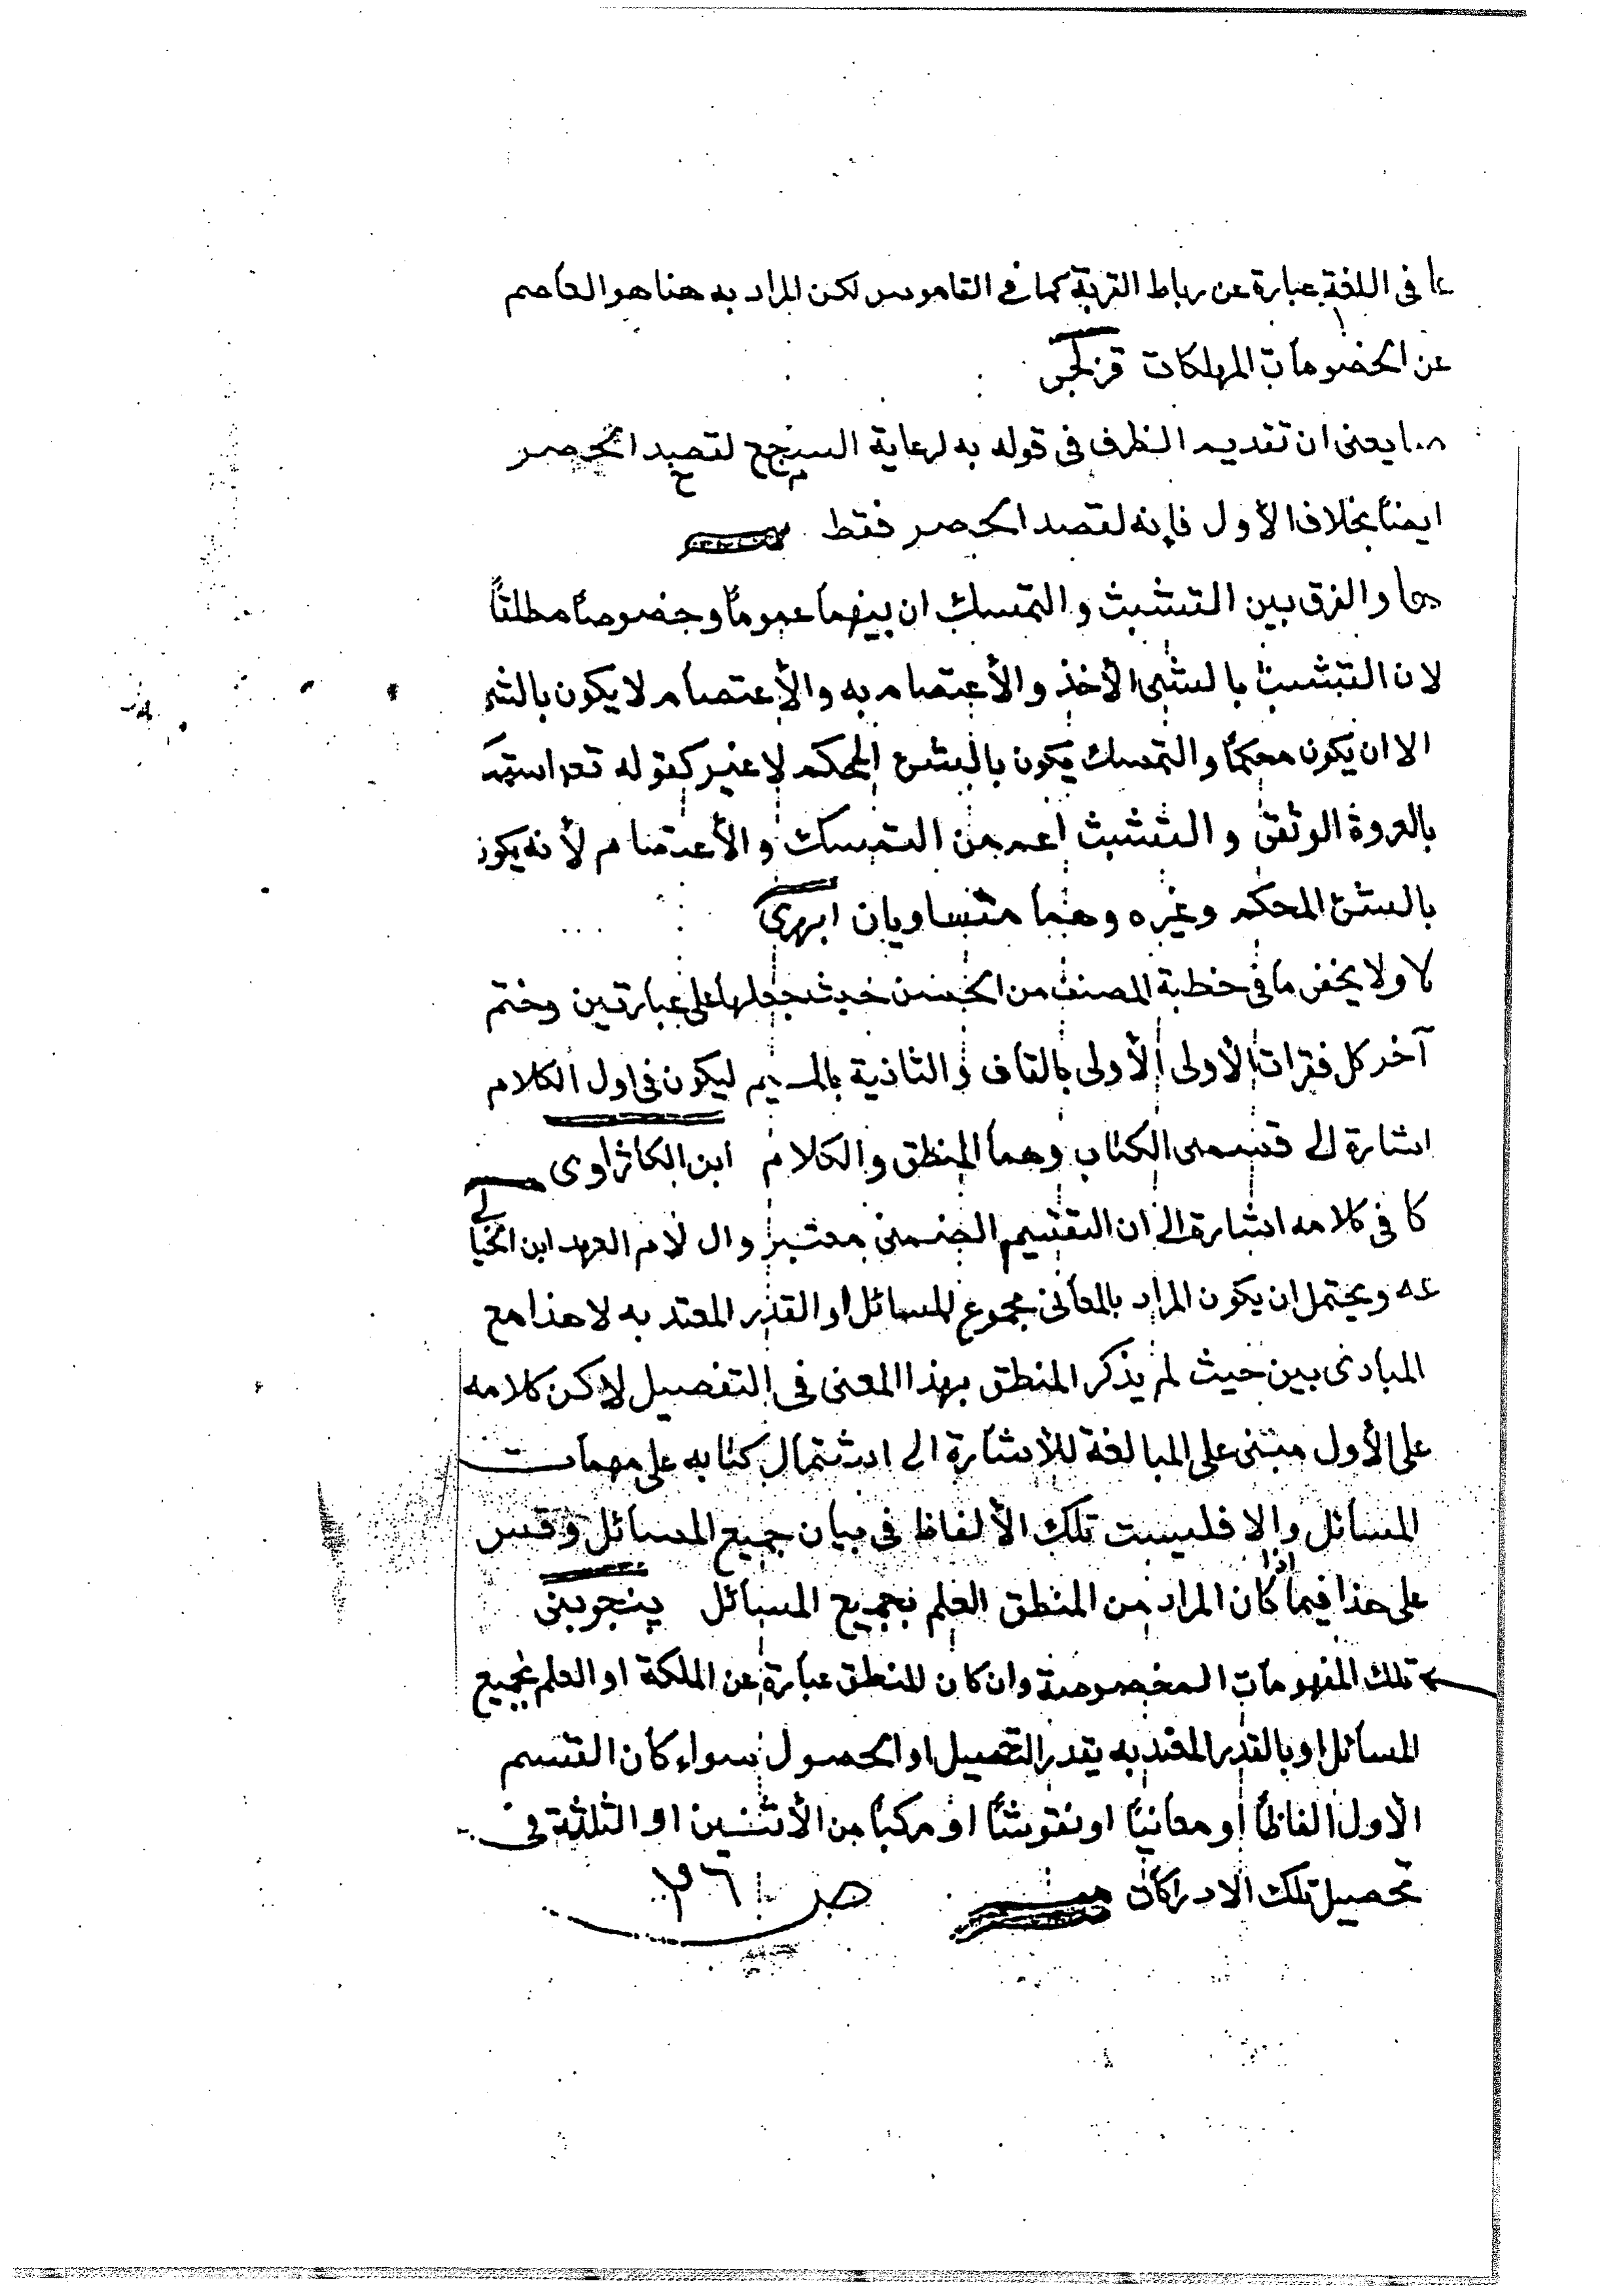 عا فى اللغة عبارة عن رباط القربة كما فى القاموس لكن المراد به هنا هو العاصم
عن الخصومات المهلكات قزلجى
يعنى ان تقديم الظرف فى قوله به لرعاية السجع لقصد الحصر
ايضاً بخلاف الأول فإنه لقصد الحصر فقط
والفرق بين التشبث والتمسك ان بينهما عموماً وخصوصاً مطلقاً
لان التشبث بالشئ الأخذ والأعتصام به والإعتصام لا يكون بالشئ
الا ان يكون محكماً والتمسك يكون بالشئ المحكم لا غير كقوله تعـ استمسك
بالعروة الوثقى والتشبث اعم من التمسك والأعتصام لأنه يكون
بالشئ المحكم وغيره وهما متساويان ابهرى
ولا يخفى ما فى خطبة المصنف من الحسن حيث جعلها على عبارتين وختم
آخر كل فقرات الأولى الأولى بالقاف والثانية بالميم ليكون فى اول الكلام
اشارة الى قسمى الكتاب وهما المنطق والكلام ابن الكاژاوى
كا فى كلامه اشارة الى ان التقسيم الضمنى معتبر وال لام العهد ابن الخياط
عه ويحتمل ان يكون المراد بالمعانى مجموع المسائل او القدر المعتد به لا هذا مع
المبادى بين حيث لم يذكر المنطق بهذا المعنى فى التفصيل لاكن كلامه
على الأول مبتنى على المبالغة للأشارة الى اشتمال كتابه على مهمات
المسائل والا فليست تلك الألفاظ فى بيان جميع المسائل وقس
على هذا فيما اذا كان المراد من المنطق العلم بجميع المسائل پنجوينى
تلك المفهومات المخصوصة وان كان المنطق عبارة عن الملكة او العلم بجميع
المسائل او بالقدر المعتد به يقدر التحصيل او الحصول سواء كان القسم
الأول الفاظاً او معانياً او نقوشاً او مركباً من الأثنين او الثلثة فى
تحصيل تلك الادراكات صـ ٣٦